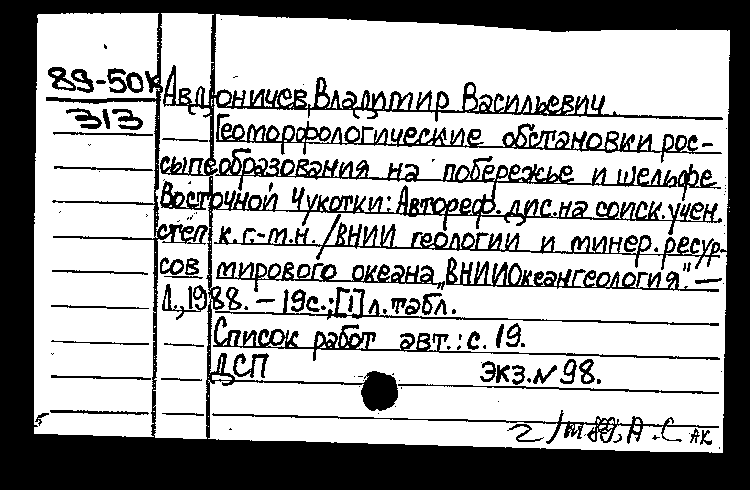 89-50К
313
Авдоничев, Владимир Васильевич.
Геоморфологические обстановки рос-
сыпеобразования на побережье и шельфе
Восточной Чукотки: Автореф. дис. на соиск. учен.
степ. к. г.-м.н. / ВНИИ геологии и минер. ресур-
сов мирового океана „ВНИИОкеангеология". —
Л., 1988. — 19с.; [1] л. табл.
Список работ авт.: с. 19.
ДСП экз. N 98.
АК